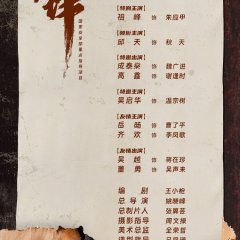 国家安全部重点指导项目
【特别主演】
祖峰 饰 朱应甲
【特别主演】
邱天 饰 秋天
【特邀出演】
成泰燊 饰 魏广进
高鑫 饰 谢逢时
【特邀主演】
吴启华 饰 温宗树
【友情主演】
岳旸 饰 曹了平
齐欢 饰 李凤歌
【友情出演】
吴越 饰 蒋在珍
董勇 饰 吴声来
编剧 王小枪
总导演 姚晓峰
总制片人 张冀芸
摄影指导
美术总监 全荣哲